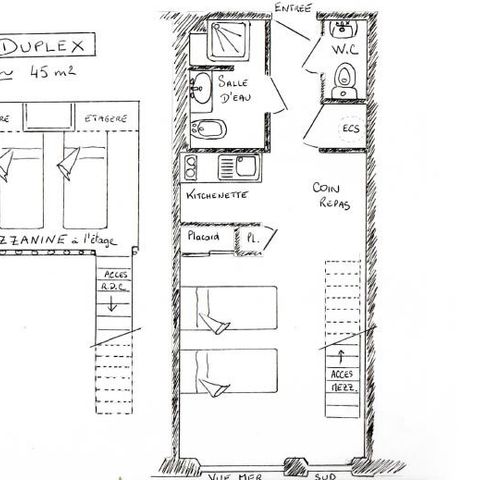 DUPLEX
~ 45 m2
ETAGERE
ZZANINE à l'étage
ACCES
R.D.C
ENTRÉE
W.C
SALLE
D'EAU
ECS
KITCHENETTE
COIN
REPAS
Placard
PL.
ACCES
MEZZ.
VUE MER SUD